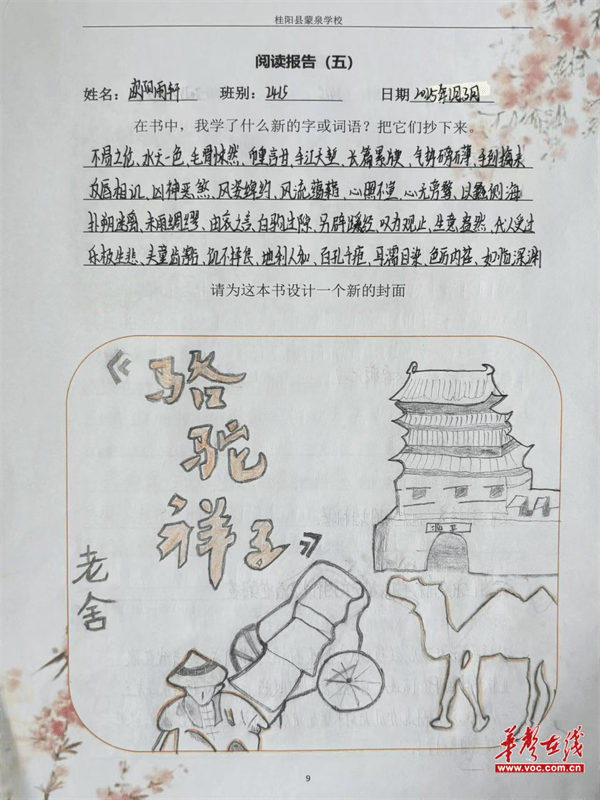 桂阳县蒙泉学校
阅读报告（五）
姓名： 欧阳雨轩 班别： 2415 日期 2025年1月3日
在书中，我学了什么新的字或词语？把它们抄下来。
水天一色、毛骨悚然、长篇累牍、气势磅礴
反唇相讥、凶神恶煞、风姿绰约、风流蕴藉、心照不宣、心无旁骛、以蠡测海
扑朔迷离、未雨绸缪、由衷之言、白驹过隙、另辟蹊径、叹为观止、生意盎然、代人受过
乐极生悲、饥不择食、地利人和、百孔千疮、耳濡目染、色厉内荏、如临深渊
请为这本书设计一个新的封面
《骆
驼
祥子》
老舍
华声在线
www.voc.com.cn
9